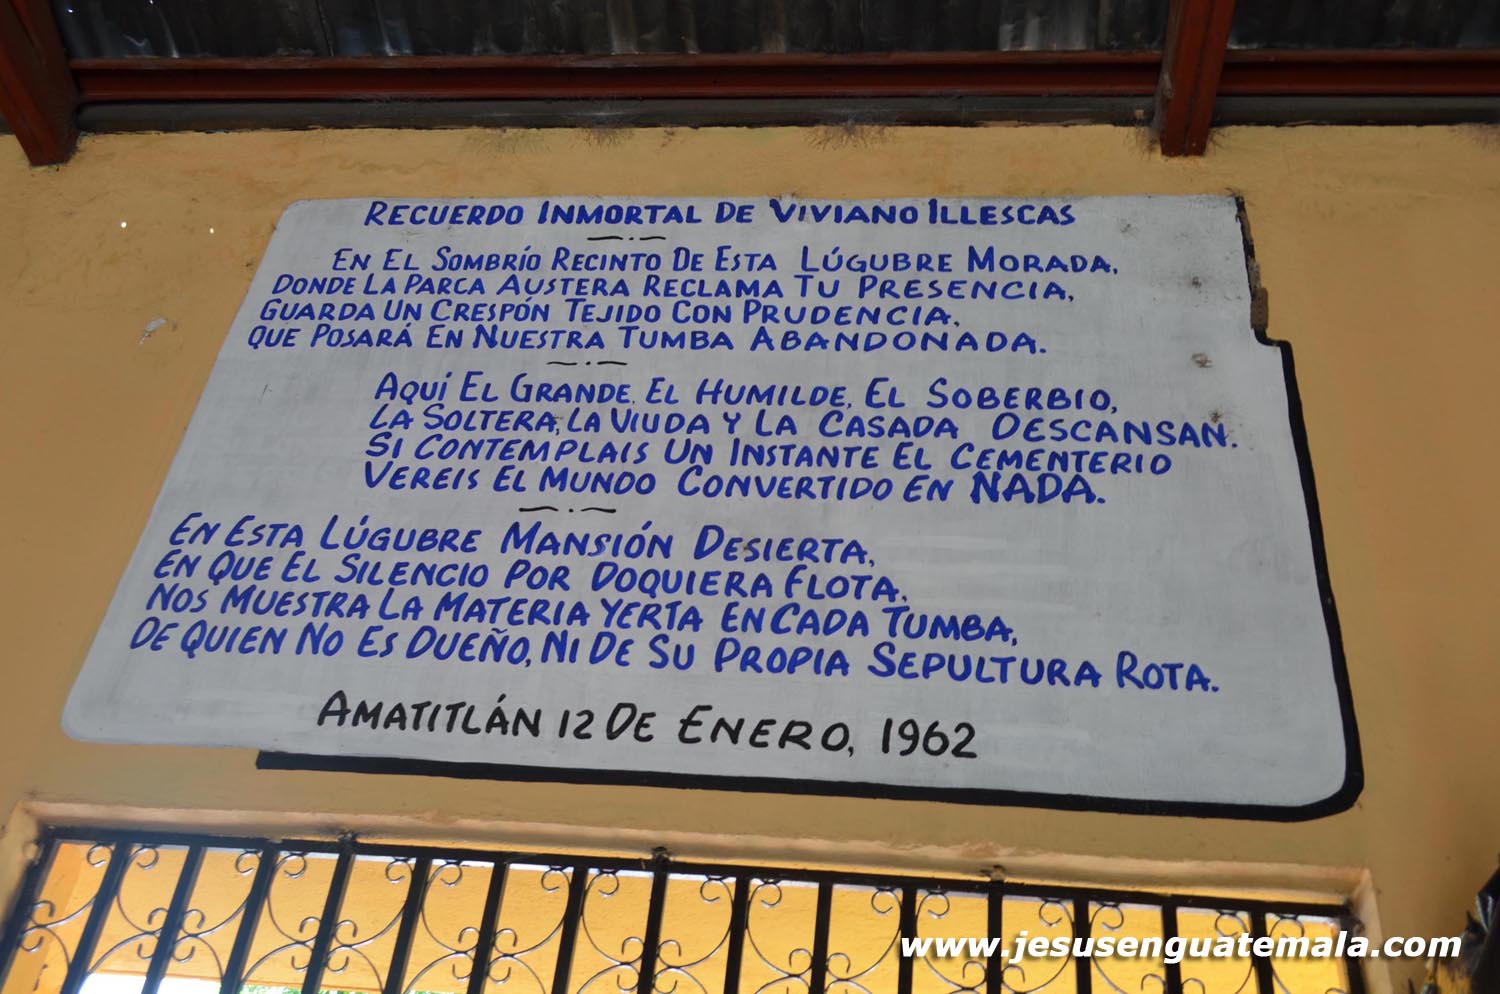 RECUERDO INMORTAL DE VIVIANO ILLESCAS
EN EL SOMBRÍO RECINTO DE ESTA LÚGUBRE MORADA,
DONDE LA PARCA AUSTERA RECLAMA TU PRESENCIA,
GUARDA UN CRESPÓN TEJIDO CON PRUDENCIA,
QUE POSARÁ EN NUESTRA TUMBA ABANDONADA.
AQUÍ EL GRANDE, EL HUMILDE, EL SOBERBIO,
LA SOLTERA, LA VIUDA Y LA CASADA DESCANSAN.
SI CONTEMPLAIS UN INSTANTE EL CEMENTERIO
VEREIS EL MUNDO CONVERTIDO EN NADA.
EN ESTA LÚGUBRE MANSIÓN DESIERTA,
EN QUE EL SILENCIO POR DOQUIERA FLOTA,
NOS MUESTRA LA MATERIA YERTA EN CADA TUMBA,
DE QUIEN NO ES DUEÑO, NI DE SU PROPIA SEPULTURA ROTA.
AMATITLÁN 12 DE ENERO, 1962
www.jesusenguatemala.com